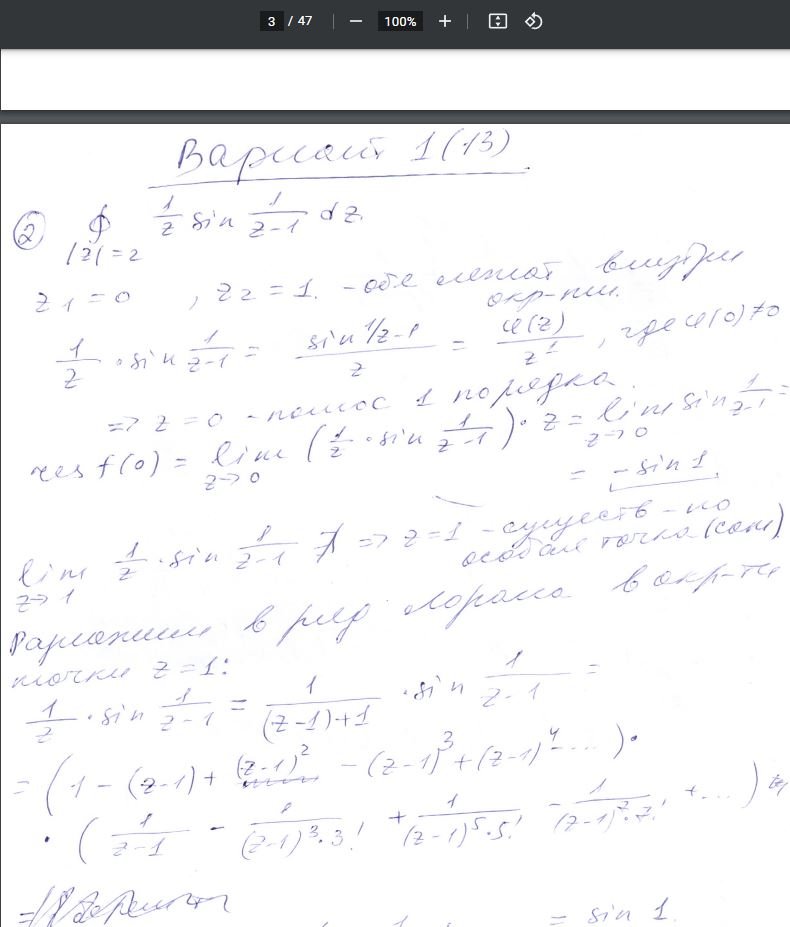 3 / 47 100%
Вариант 1 (13)
② ∮ 1/z sin 1/(z-1) dz.
|z|=2
z₁ = 0 , z₂ = 1. - обе лежат внутри
окр-ти.
1/z · sin 1/(z-1) = (sin 1/z-1)/z = φ(z)/z¹ , где φ(0)≠0
=> z = 0 - полюс 1 порядка.
res f(0) = lim z→0 (1/z · sin 1/(z-1)) · z = lim z→0 sin 1/(z-1) =
= -sin 1.
lim z→1 1/z · sin 1/(z-1) ∄ => z=1 - существ-но
особая точка (сот)
Разложим в ряд Лорана в окр-ти
точки z = 1:
1/z · sin 1/(z-1) = 1/((z-1)+1) · sin 1/(z-1) =
= (1 - (z-1) + (z-1)² - (z-1)³ + (z-1)⁴ - ... ) ·
· ( 1/(z-1) - 1/((z-1)³·3!) + 1/((z-1)⁵·5!) - 1/((z-1)⁷·7!) + ... )
= sin 1.